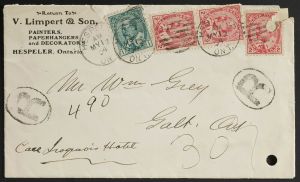 Return To
V. Limpert & Son,
PAINTERS,
PAPERHANGERS
and DECORATORS
HESPELER, Ontario
ONT.
R
Mr Wm Grey
490
Galt, Ont
R
Care Iroquois Hotel
30